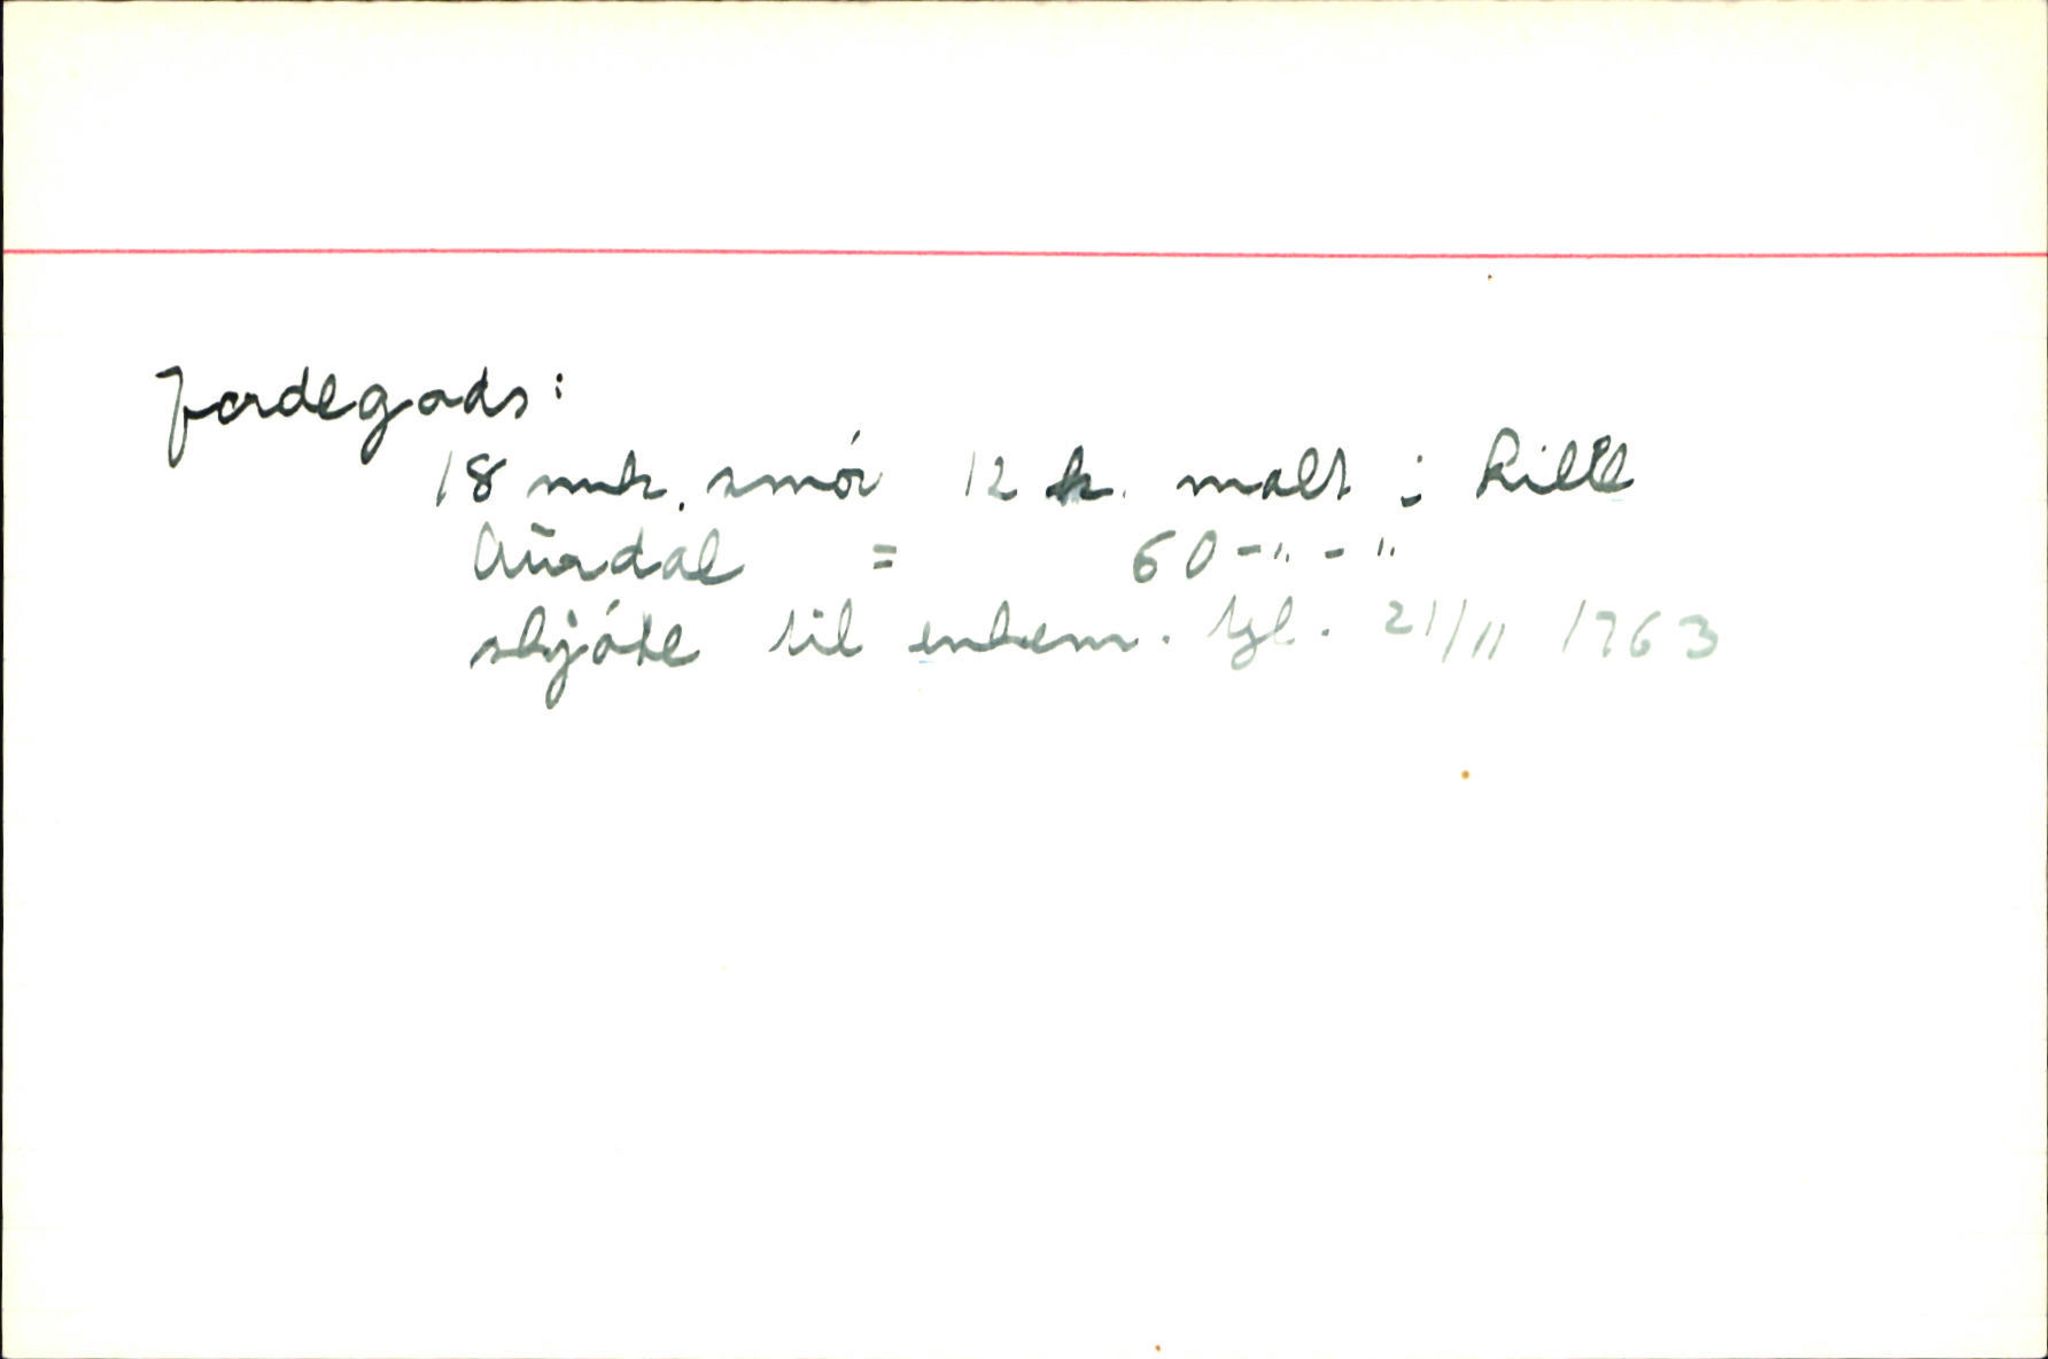 Jordegods:
18 mrk. smór 12 k. malt i Lille
Aŭrdal = 60-"-"
skjóte til enkem. tgl. 21/11 1763